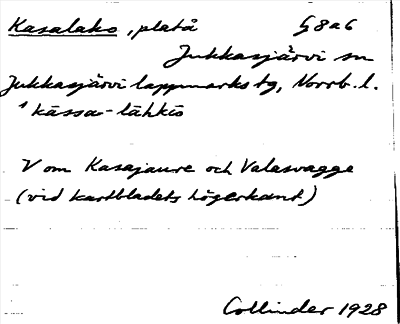 Kasalako, platå § 8 a 6
Jukkasjärvi sn
Jukkasjärvi lappmarks tg, Norrb. l.
ˈkássa-láhkȯ
V om Kasajaure och Valasvagge
(vid kartbladets högerkant)
Collinder 1928